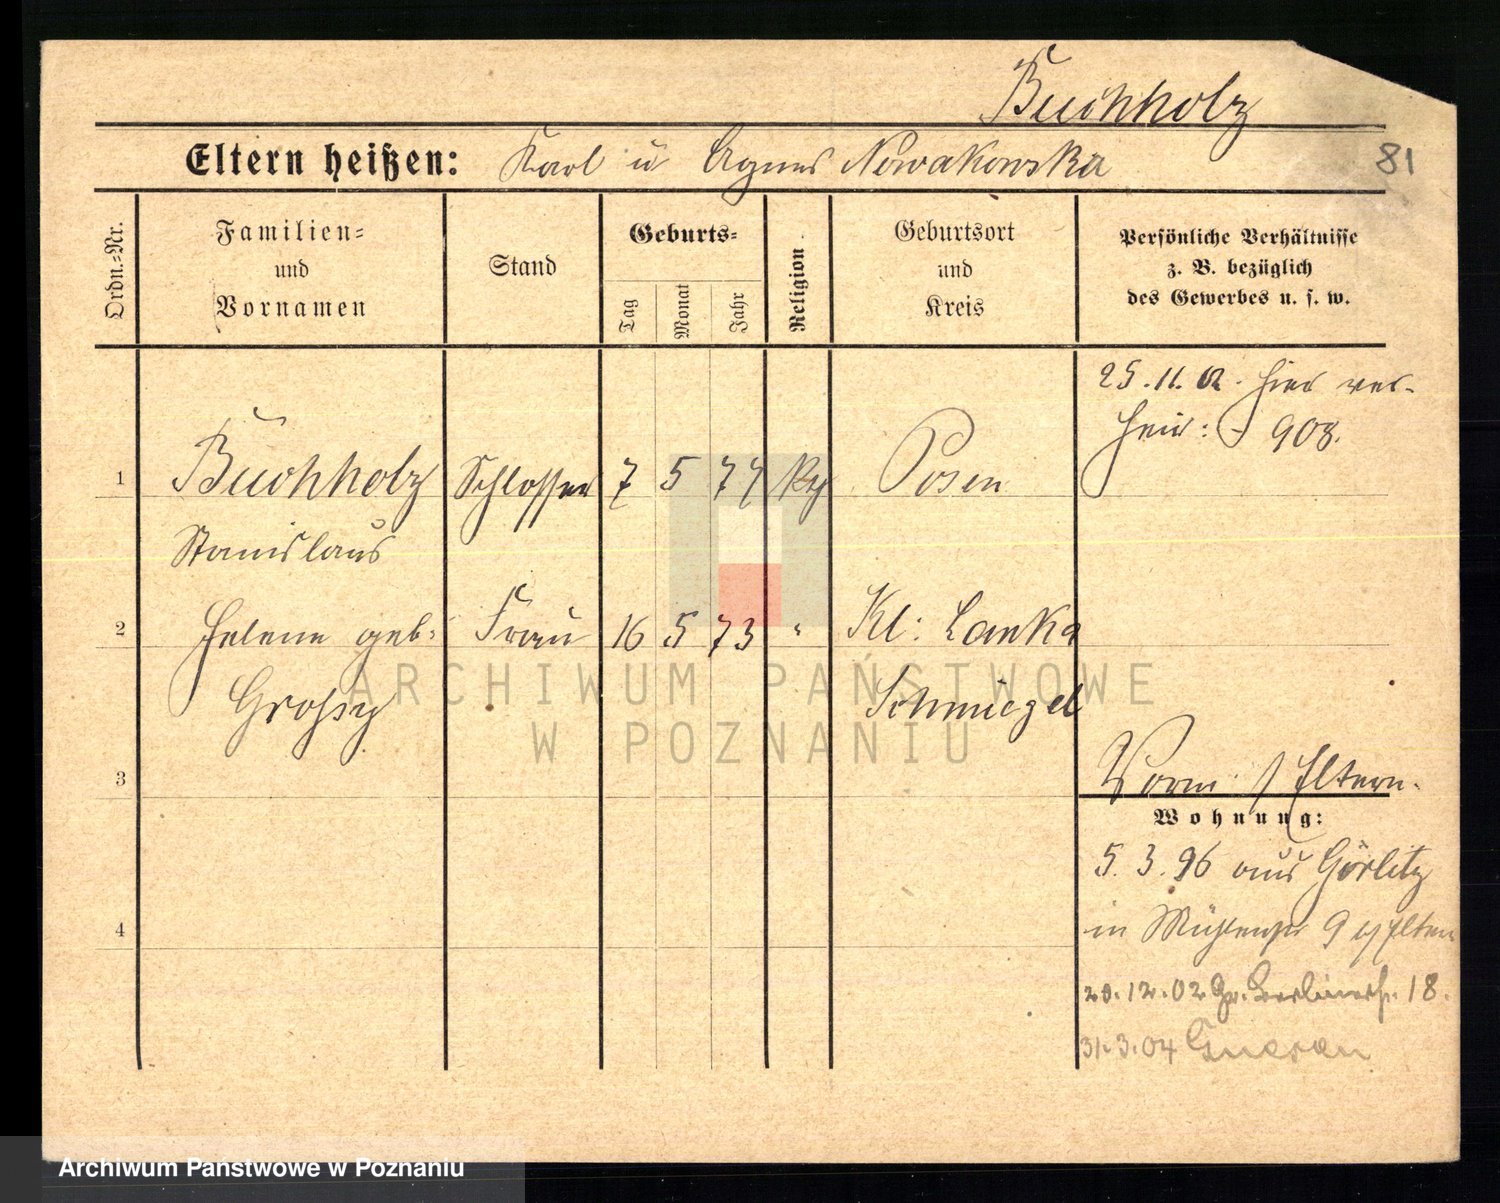 Buchholz
Eltern heißen: Karl u Agnes Nowakowska
81
Ordn.-Nr.
Familien-
und
Vornamen
Stand
Geburts-
Tag
Monat
Jahr
Religion
Geburtsort
und
Kreis
Persönliche Verhältnisse
z. B. bezüglich
des Gewerbes u. s. w.
25.11.02. hier ver-
heir: 908.
1 Buchholz Schlosser 7 5 77 Posen
Stanislaus
2 Helene geb: Frau 16 5 73 " Kl: Lanka
Schmiegel
3
Vorm: Eltern.
Wohnung:
5.3.96 aus Görlitz
4
in Mühlenstr 9 Eltern
20.12.02 Gr. Berlinerstr. 18.
31.3.04 Gnesen
ARCHIWUM PAŃSTWOWE
W POZNANIU
Archiwum Państwowe w Poznaniu